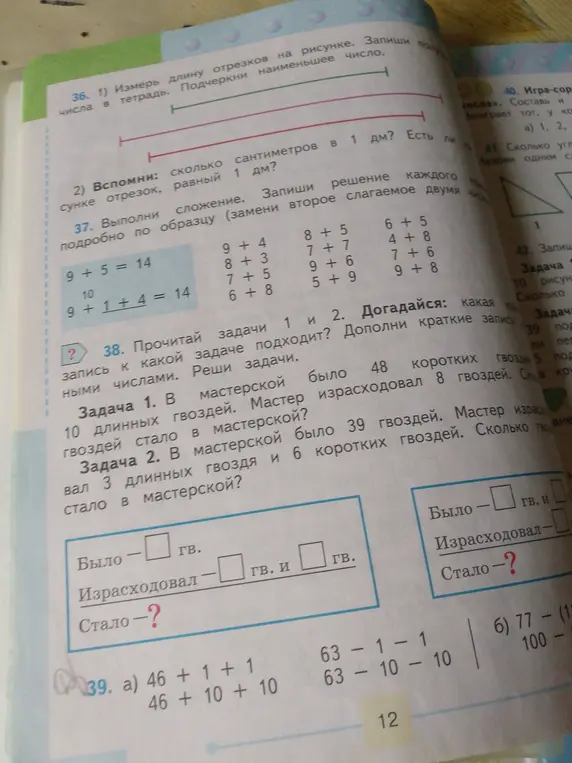 36. 1) Измерь длину отрезков на рисунке. Запиши
числа в тетрадь. Подчеркни наименьшее число.
2) Вспомни: сколько сантиметров в 1 дм? Есть
сунке отрезок, равный 1 дм?
37. Выполни сложение. Запиши решение каждого
подробно по образцу (замени второе слагаемое двумя
9 + 5 = 14
10
9 + 1 + 4 = 14
9 + 4 8 + 5 6 + 5
8 + 3 7 + 7 4 + 8
7 + 5 9 + 6 7 + 6
6 + 8 5 + 9 9 + 8
? 38. Прочитай задачи 1 и 2. Догадайся: какая
запись к какой задаче подходит? Дополни краткие
ными числами. Реши задачи.
Задача 1. В мастерской было 48 коротких
10 длинных гвоздей. Мастер израсходовал 8 гвоздей.
гвоздей стало в мастерской?
Задача 2. В мастерской было 39 гвоздей. Мастер
вал 3 длинных гвоздя и 6 коротких гвоздей. Сколько
стало в мастерской?
Было — гв.
Израсходовал — гв. и гв.
Стало — ?
Было — гв. и
Израсходовал —
Стало — ?
39. а) 46 + 1 + 1 63 − 1 − 1 б) 77 −
46 + 10 + 10 63 − 10 − 10 100 −
12
40.
а) 1, 2,
Сколько
1
42.
Задача
Сколько
39